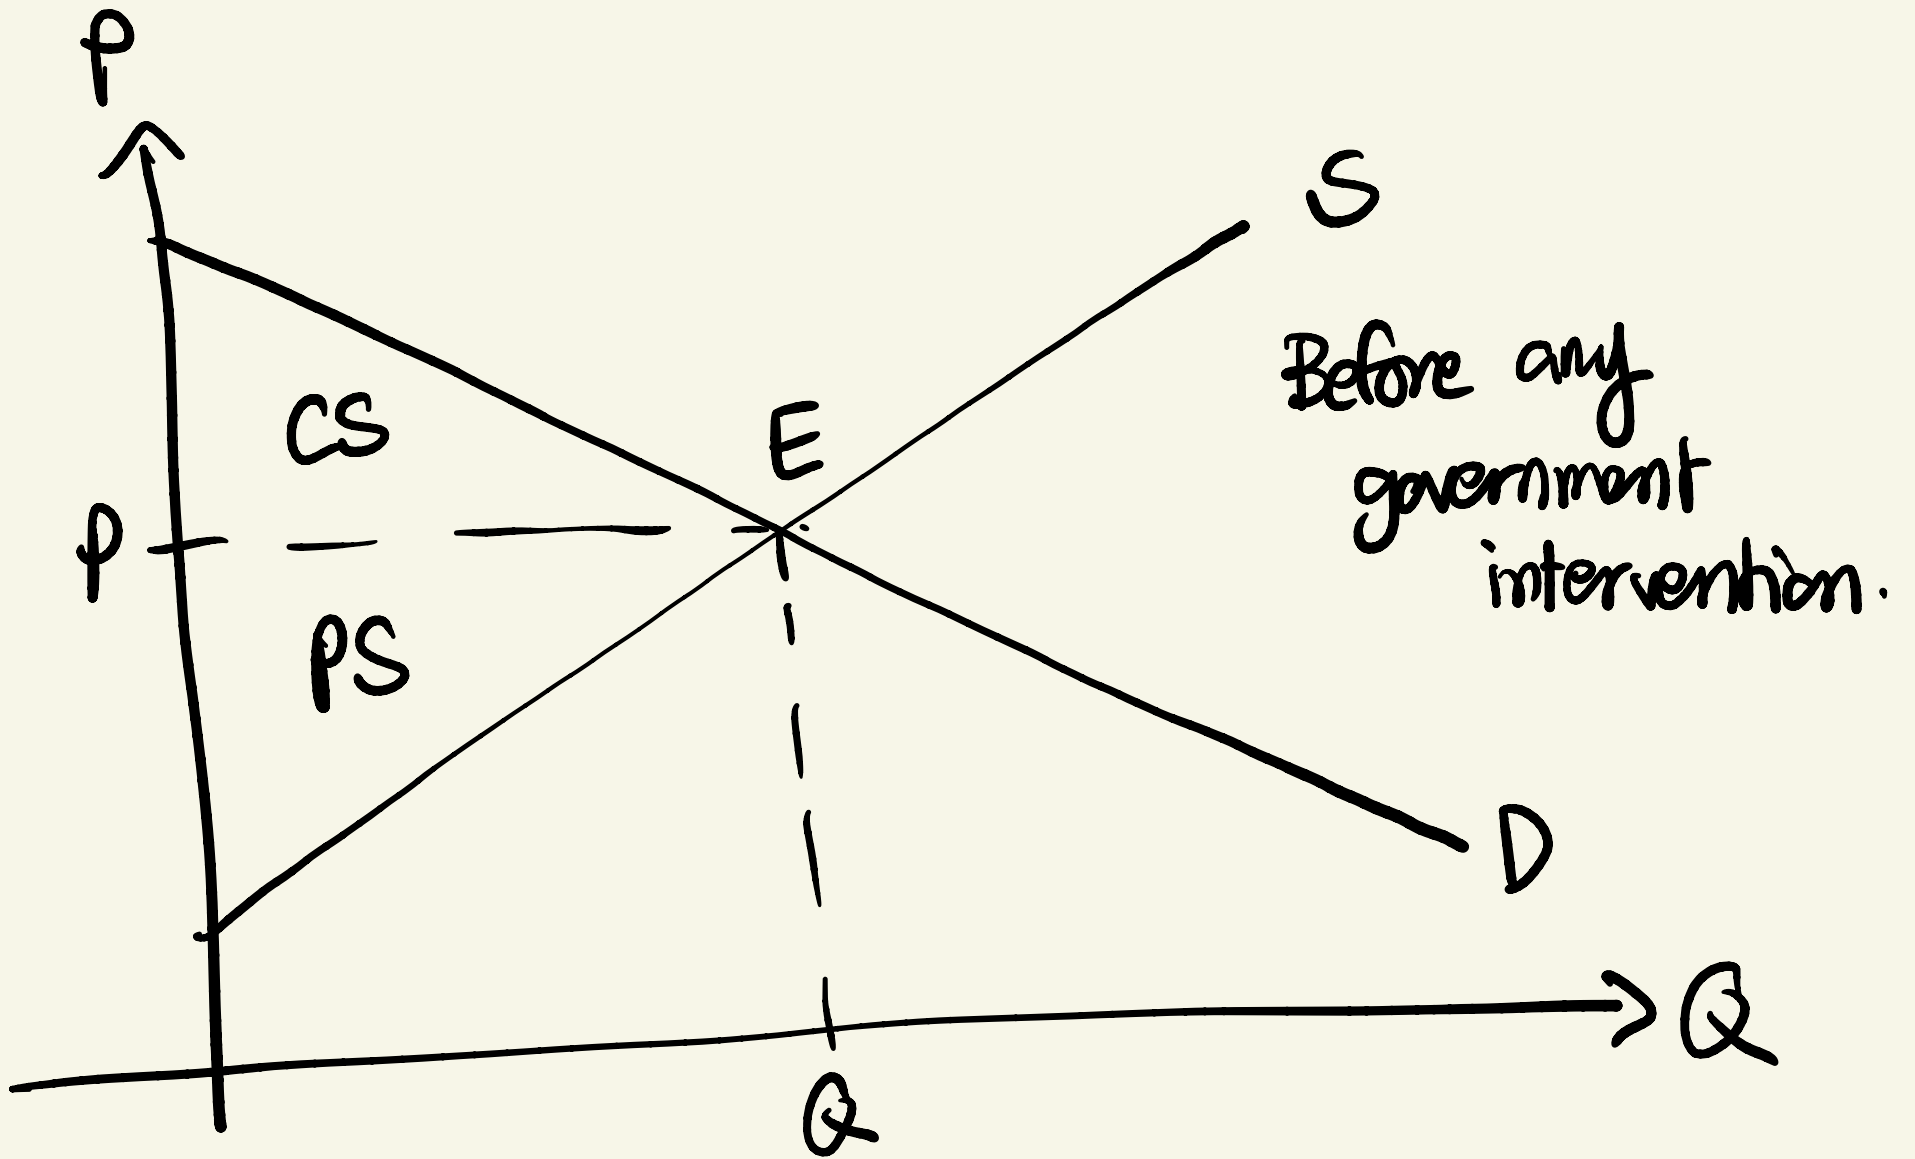 P
S
Before any
government
intervention.
CS
E
P
PS
D
Q
Q